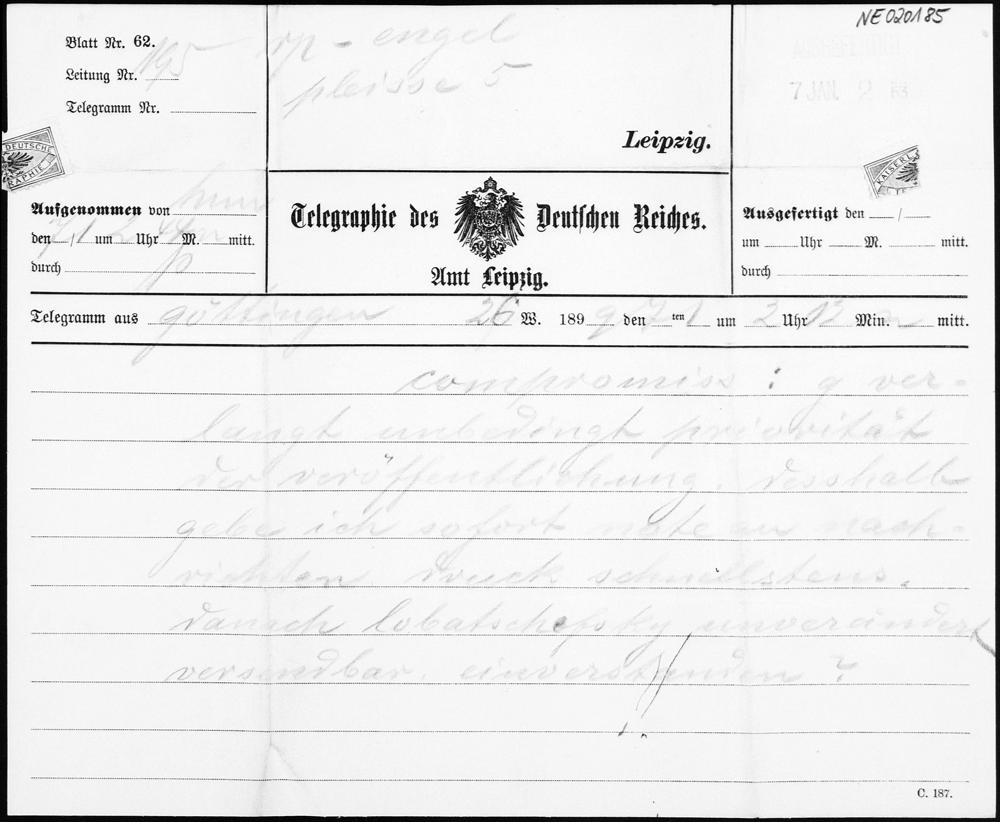 NE020185
Blatt Nr. 62.
Leitung Nr. 195
Telegramm Nr.
rp - engel
pleisse 5
Leipzig.
7 JAN.
DEUTSCHE
KAISERL
Aufgenommen von
den 7/1 um 2 Uhr M. mitt.
durch
Telegraphie des Deutschen Reiches.
Amt Leipzig.
Ausgefertigt den /
um Uhr M. mitt.
durch
Telegramm aus göttingen 26 W. 189 9 den 7 ten 1 um 2 Uhr 12 Min. mitt.
compromiss : g ver-
langt unbedingt priorität
der veröffentlichung. desshalb
gebe ich sofort note an nach-
richten druck schnellstens.
danach lobatschefsky unverändert
versendbar. einverstanden ?
C. 187.